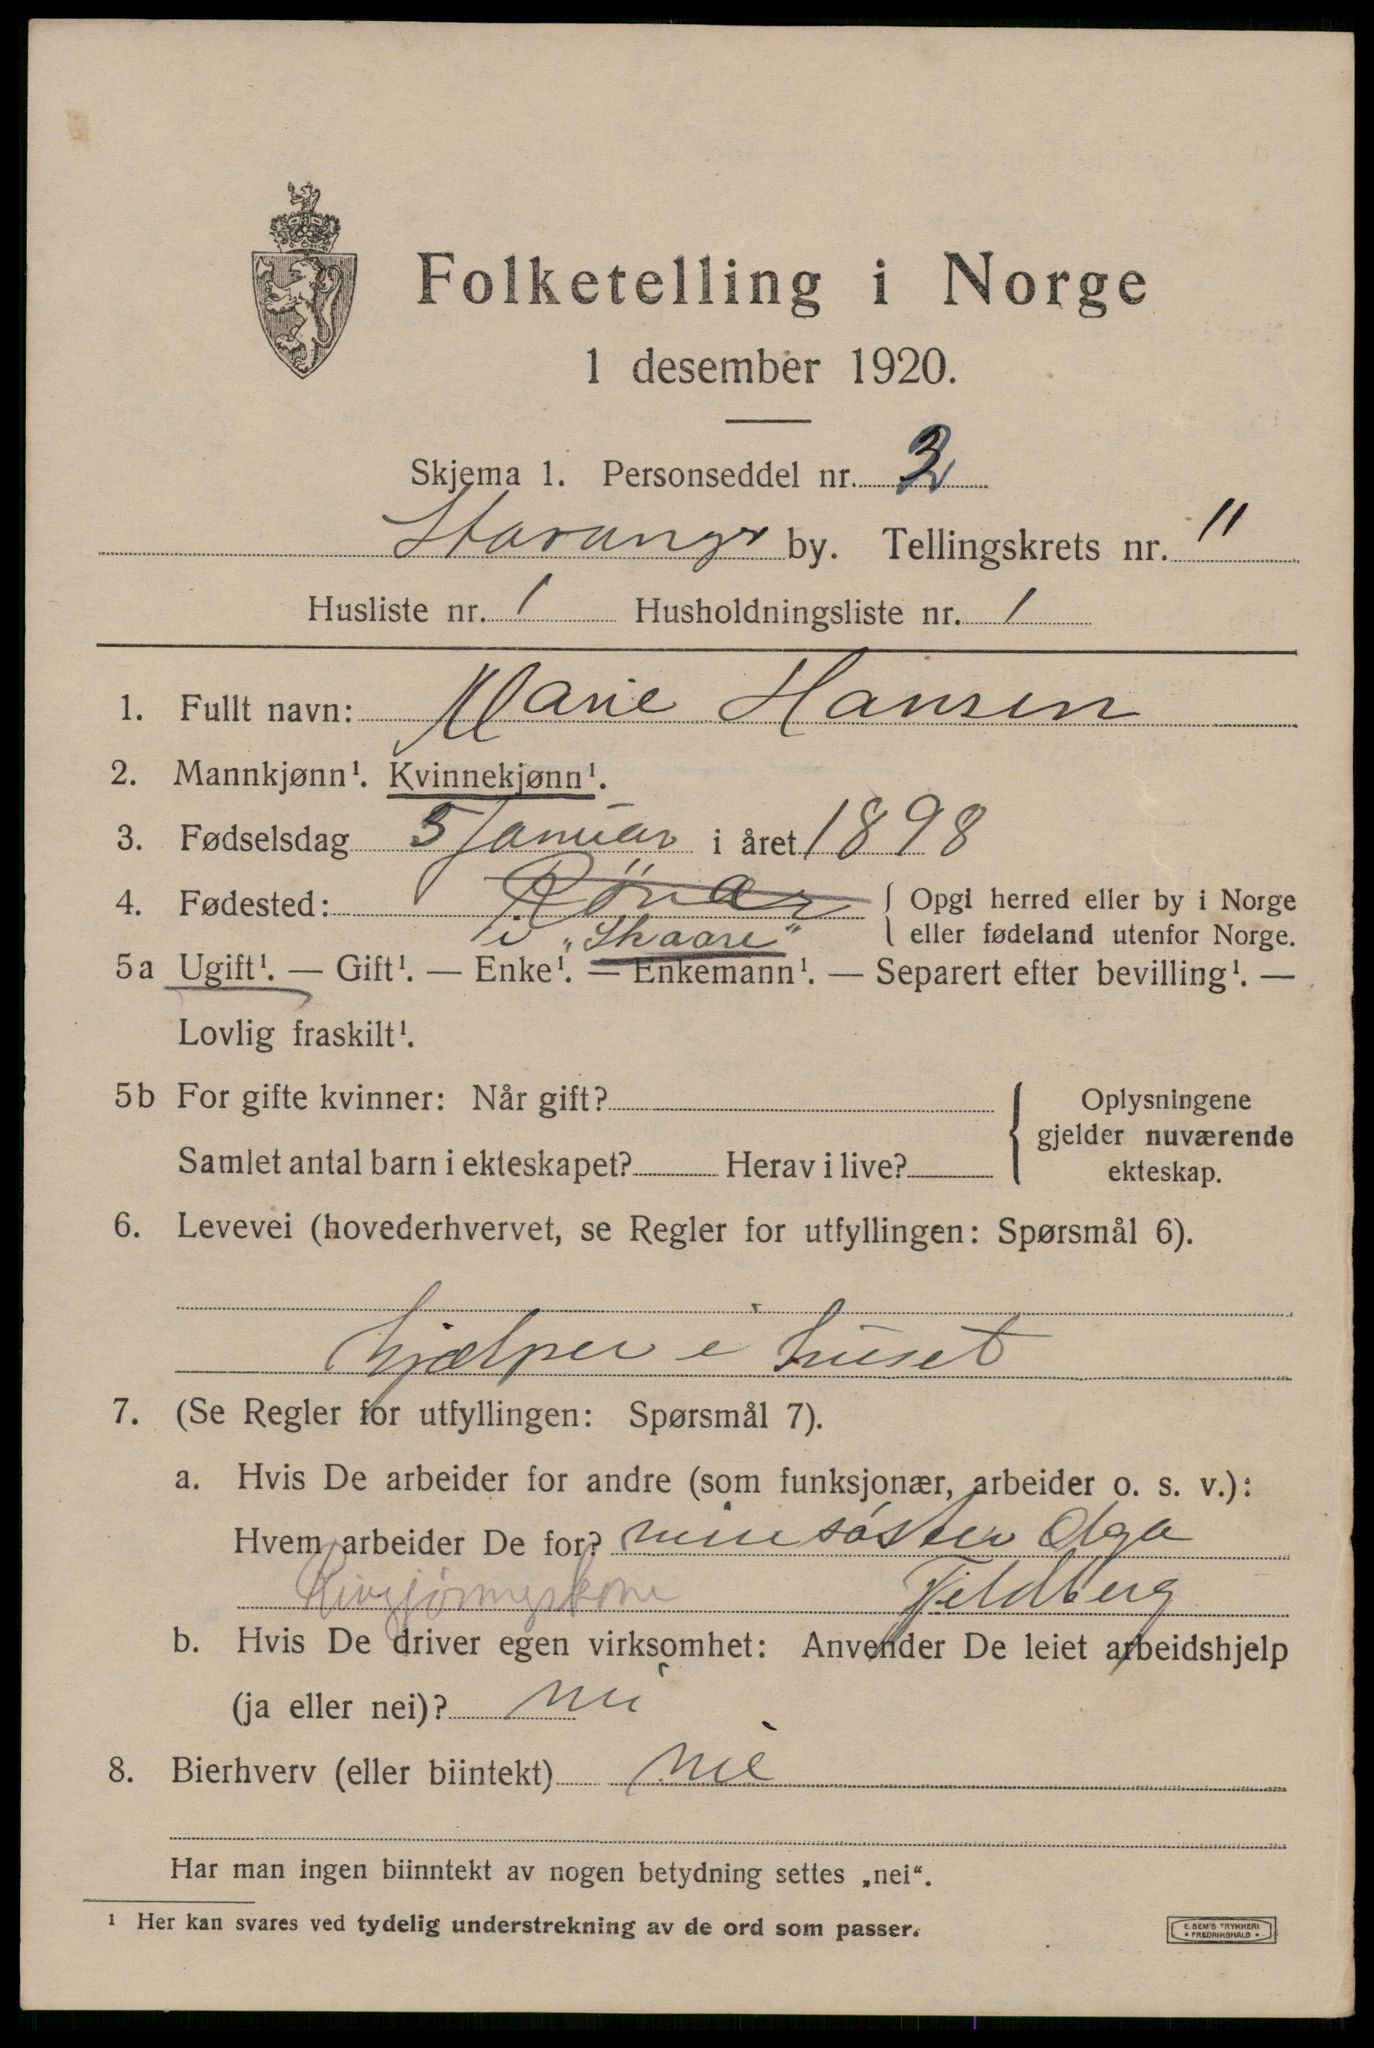 Folketelling i Norge
1 desember 1920.
Skjema 1. Personseddel nr. 3
Stavanger by. Tellingskrets nr. 11
Husliste nr. 1 Husholdningsliste nr. 1
1. Fullt navn: Marie Hansen
2. Mannkjønn¹. Kvinnekjønn¹.
3. Fødselsdag 5 Januar i året 1898
4. Fødested: { Opgi herred eller by i Norge
i „Skaare" eller fødeland utenfor Norge.
5a Ugift¹. — Gift¹. — Enke¹. — Enkemann¹. — Separert efter bevilling¹. —
Lovlig fraskilt¹.
5b For gifte kvinner: Når gift?
Samlet antal barn i ekteskapet? Herav i live?
{ Oplysningene
gjelder nuværende
ekteskap.
6. Levevei (hovederhvervet, se Regler for utfyllingen: Spørsmål 6).
hjælper i huset
7. (Se Regler for utfyllingen: Spørsmål 7).
a. Hvis De arbeider for andre (som funksjonær, arbeider o. s. v.):
Hvem arbeider De for? min søster Olga
Fjeldberg
b. Hvis De driver egen virksomhet: Anvender De leiet arbeidshjelp
(ja eller nei)? nei
8. Bierhverv (eller biintekt) nei
Har man ingen biinntekt av nogen betydning settes „nei“.
¹ Her kan svares ved tydelig understrekning av de ord som passer.
E. SEM'S TRYKKERI
FREDRIKSHALD